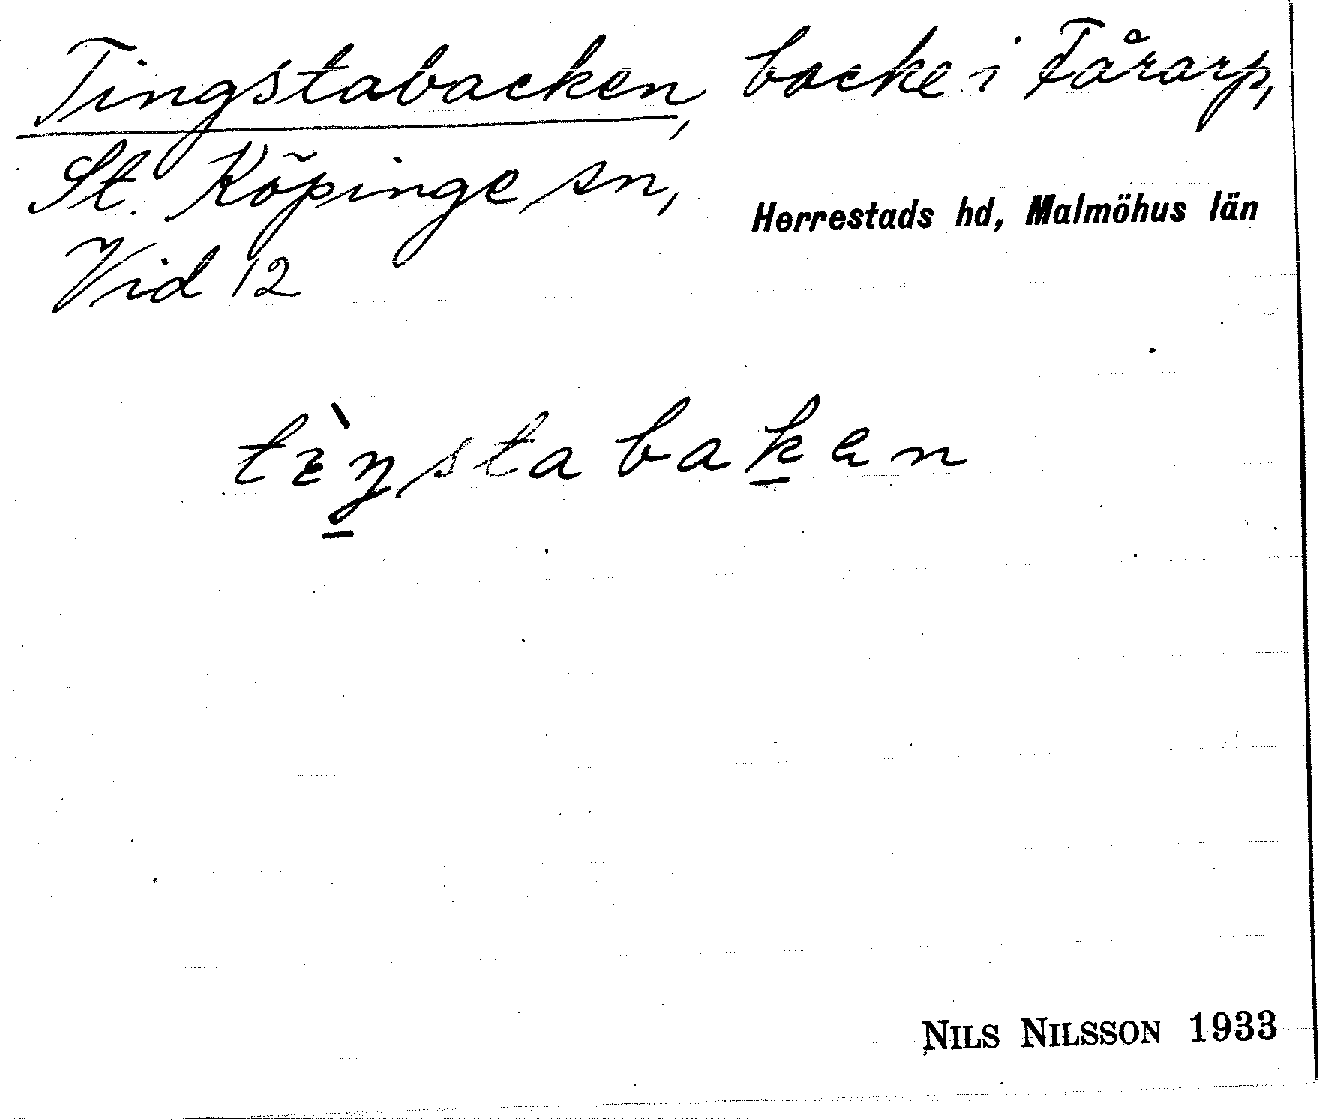 Tingstabacken, backe i Fårarp,
St. Köpinge sn,
Herrestads hd, Malmöhus län
Vid 12
tɩ̀ŋ̠stabak̠ən
NILS NILSSON 1933